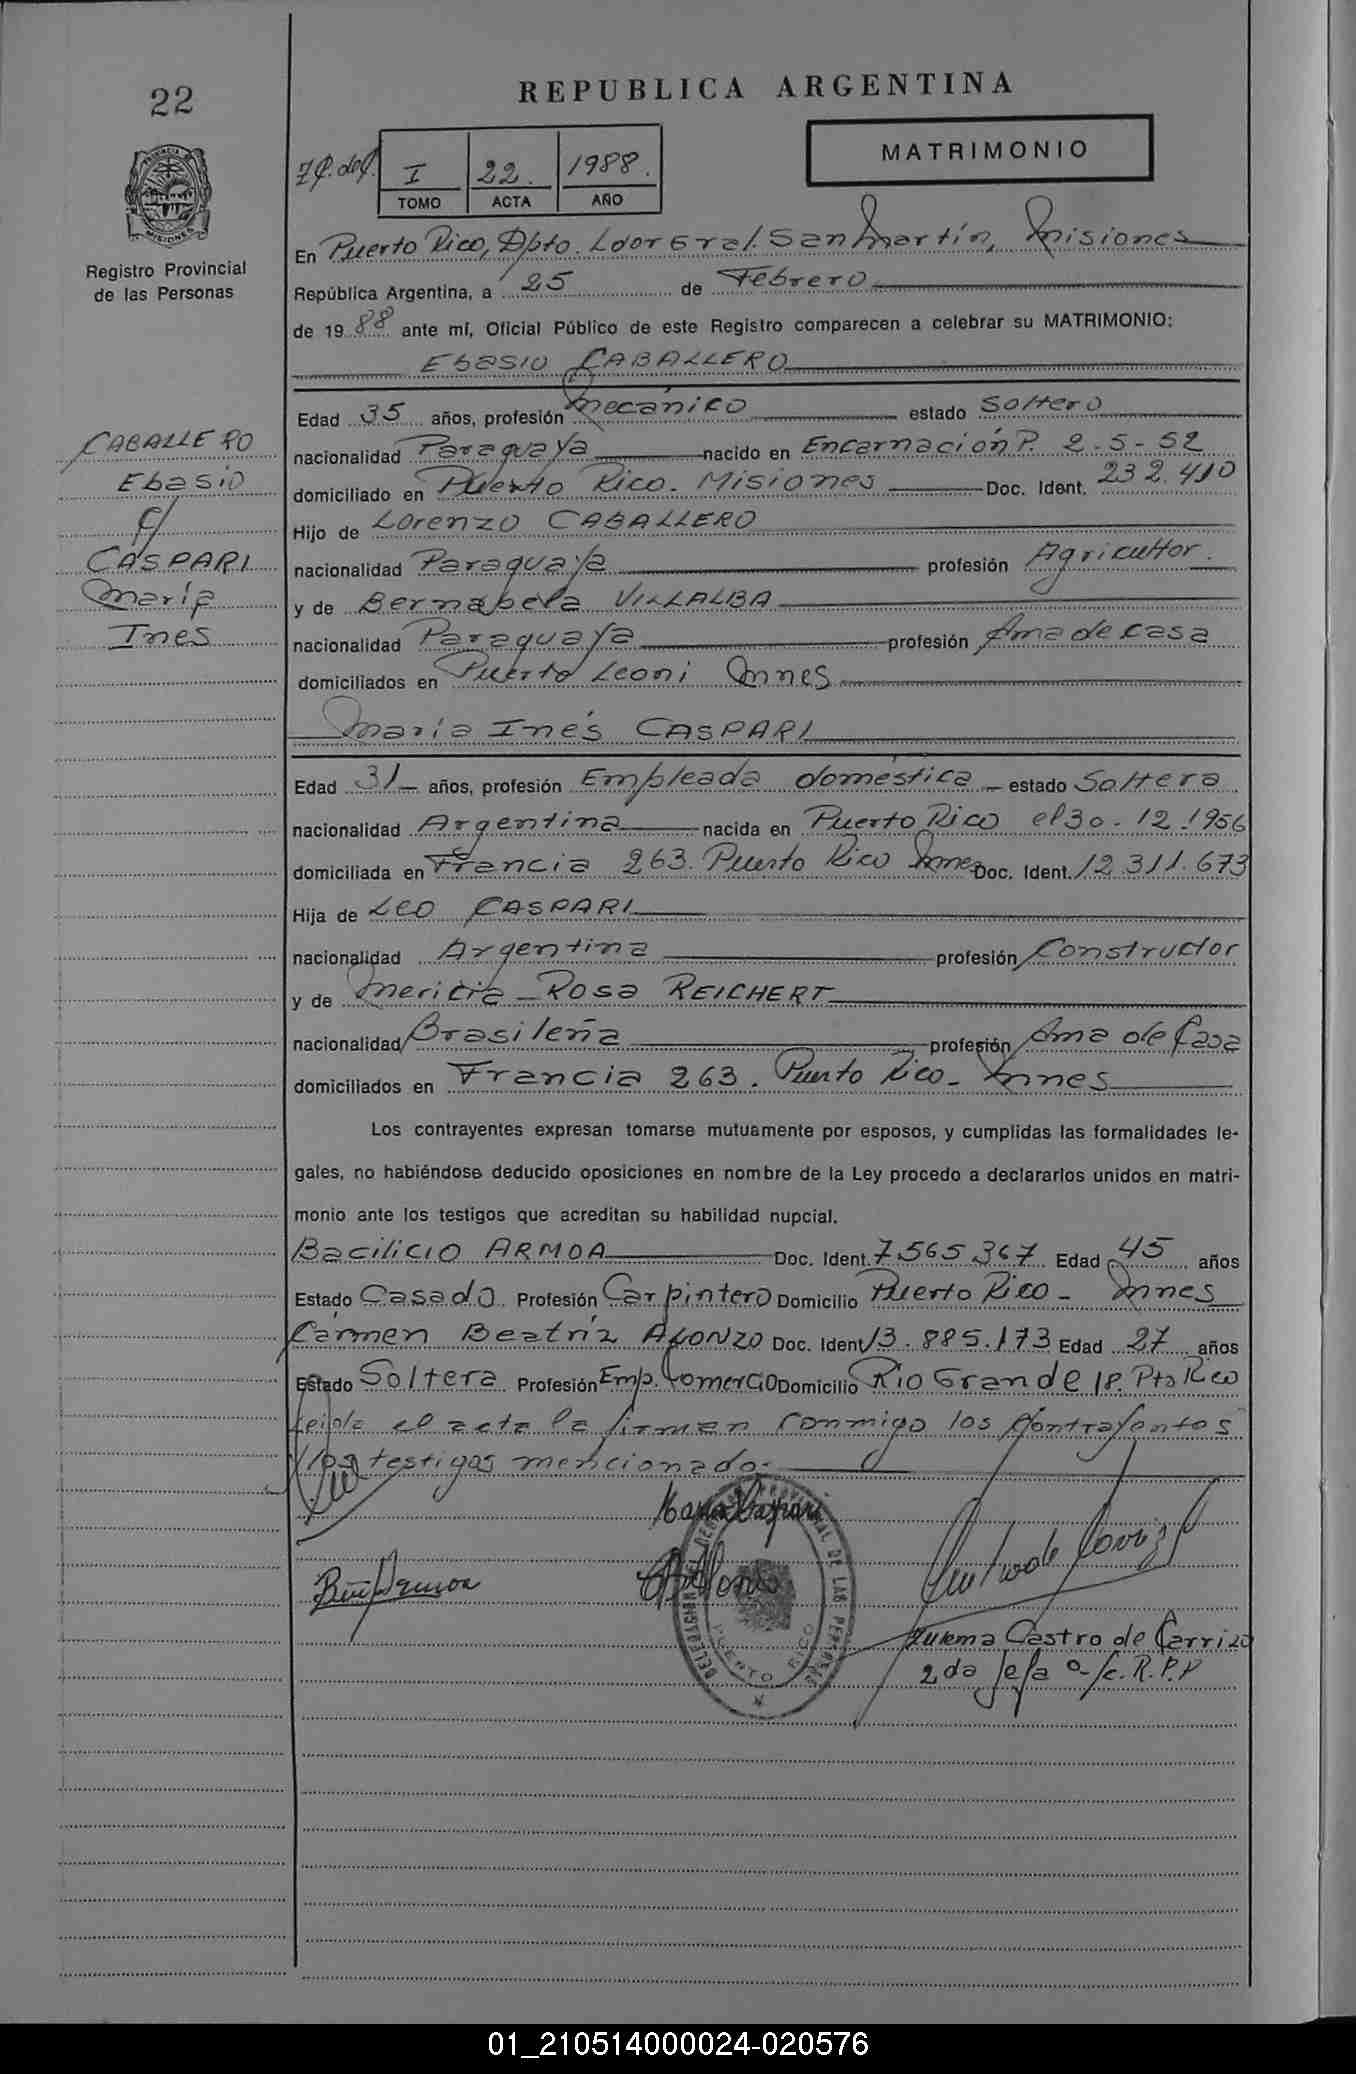 22
REPUBLICA ARGENTINA
MATRIMONIO
I 22. 1988.
TOMO ACTA AÑO
PROVINCIA DE MISIONES
Registro Provincial
de las Personas
En Puerto Rico, Dpto. Ldor Gral. San Martín, Misiones
República Argentina, a 25 de Febrero
de 1988 ante mí, Oficial Público de este Registro comparecen a celebrar su MATRIMONIO:
Ebasio CABALLERO
Edad 35 años, profesión Mecánico estado Soltero
nacionalidad Paraguaya nacido en Encarnación P. 2-5-52
domiciliado en Puerto Rico. Misiones Doc. Ident. 232.410
Hijo de Lorenzo CABALLERO
nacionalidad Paraguaya profesión Agricultor.
y de Bernabela VILLALBA
nacionalidad Paraguaya profesión Ama de casa
domiciliados en Puerto Leoni Mnes
CABALLERO
Ebasio
c/
CASPARI
María
Ines
María Inés CASPARI
Edad 31 años, profesión Empleada doméstica estado Soltera
nacionalidad Argentina nacida en Puerto Rico el 30.12.1956
domiciliada en Francia 263. Puerto Rico Mnes Doc. Ident. 12.311.673
Hija de Leo CASPARI
nacionalidad Argentina profesión Constructor
y de Rosa REICHERT
nacionalidad Brasileña profesión Ama de Casa
domiciliados en Francia 263. Puerto Rico - Mnes
Los contrayentes expresan tomarse mutuamente por esposos, y cumplidas las formalidades le-
gales, no habiéndose deducido oposiciones en nombre de la Ley procedo a declararlos unidos en matri-
monio ante los testigos que acreditan su habilidad nupcial.
Bacilicio ARMOA Doc. Ident. 7.565.367 Edad 45 años
Estado Casado Profesión Carpintero Domicilio Puerto Rico - Mnes
Cármen Beatríz ALONZO Doc. Ident 13.885.173 Edad 27 años
Estado Soltera Profesión Emp. Comercio Domicilio Rio Grande 18. Pto Rico
Leida el acta la firman conmigo los contrayentes
y los testigos mencionado.
María Caspari
Castro de Carrizo
2da Jefa a/c. R.P.P
PUERTO RICO
01_210514000024-020576